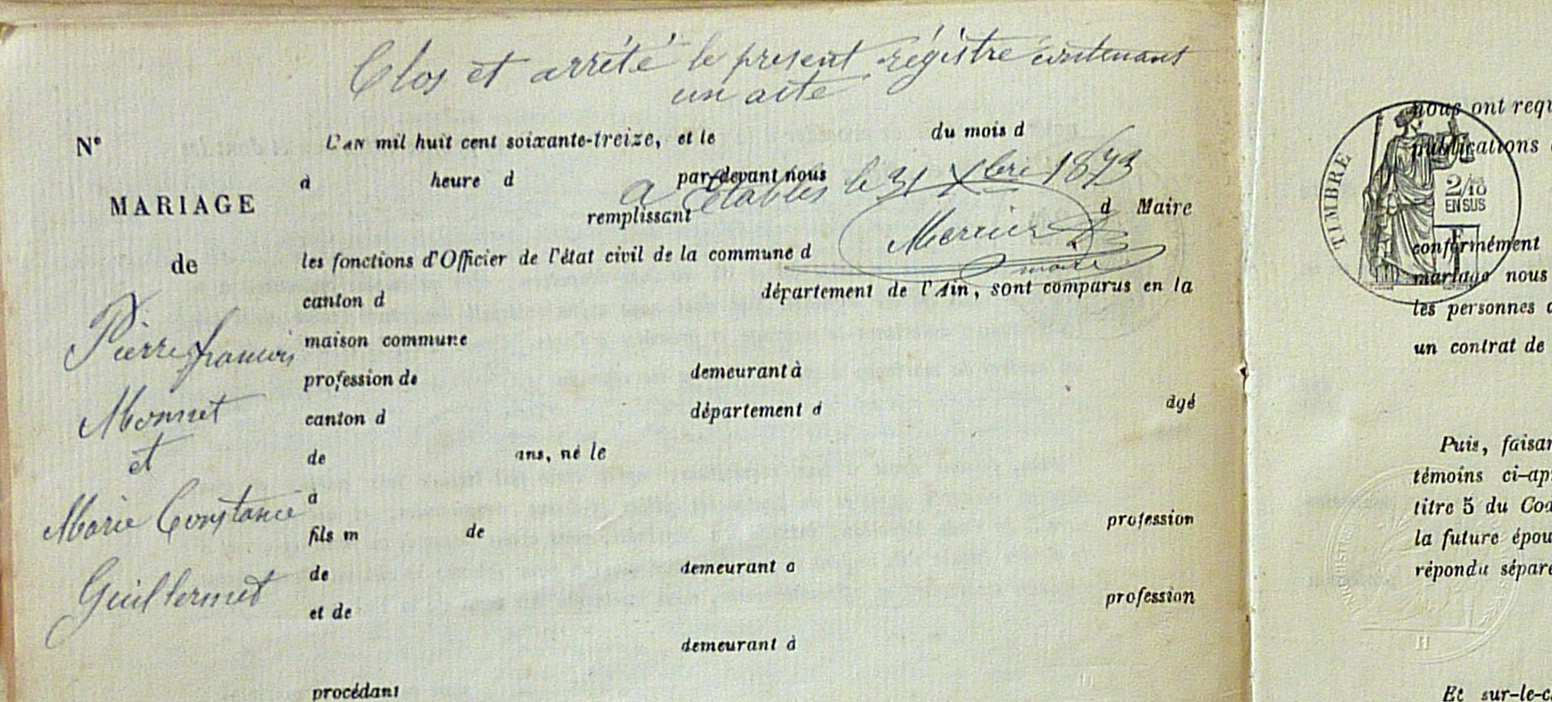 Clos et arrêté le présent régistre contenant
un acte
N° L'AN mil huit cent soixante-treize, et le du mois d
à heure d par-devant nous
a Etables le 31 Xbre 1873
MARIAGE
remplissant d Maire
Mercier
de les fonctions d'Officier de l'état civil de la commune d
maire
canton d département de l'Ain, sont comparus en la
Pierre francois maison commune
profession de demeurant à
Monnet canton d département d âgé
et de ans, né le
Marie Constance à
fils m de profession
Guillermet de demeurant à
et de profession
demeurant à
procédant
nous ont requ
publications
TIMBRE
2/10
EN SUS
conformément
mariage nous
les personnes
un contrat de
Puis, faisan
témoins ci-apr
titre 5 du Cod
la future épou
répondu séparé
Et sur-le-c